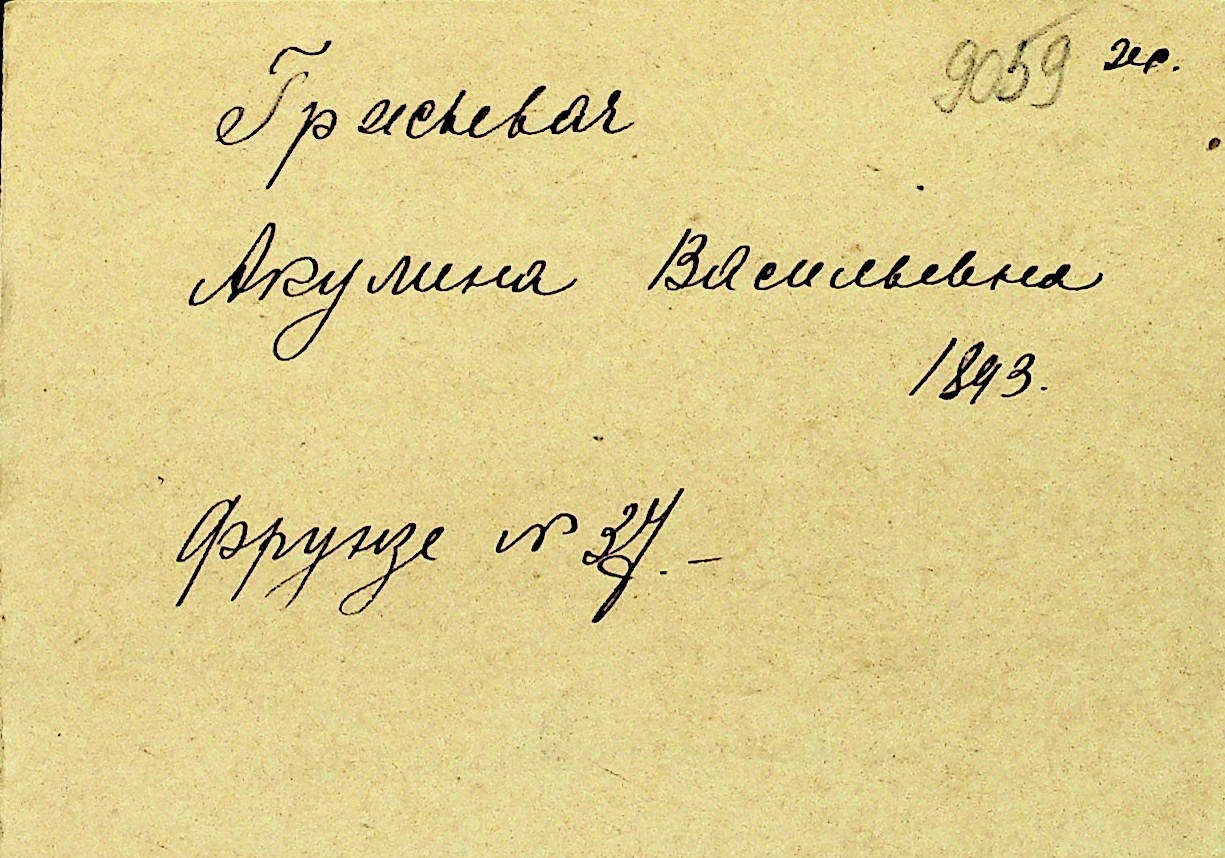 9059 жр.
Акулина Васильевна
1893.
Фрунзе № 37. –